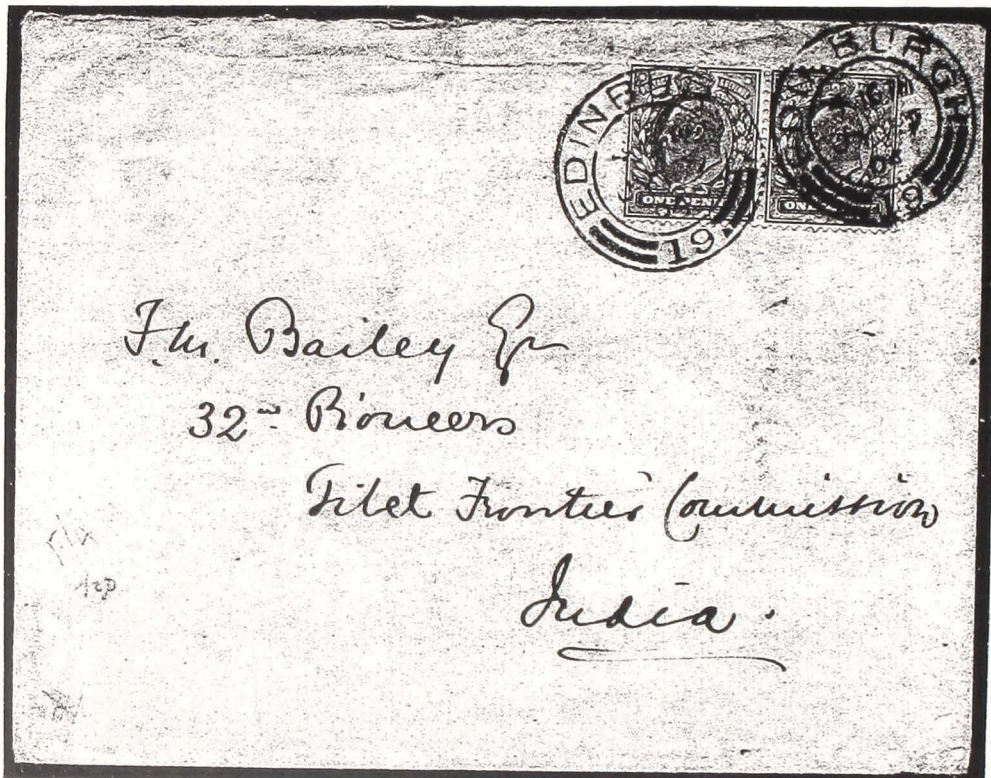 EDINBURGH
191
ONE PENNY
F.M. Bailey Esq
32nd Pioneers
Tibet Frontier Commission
India.